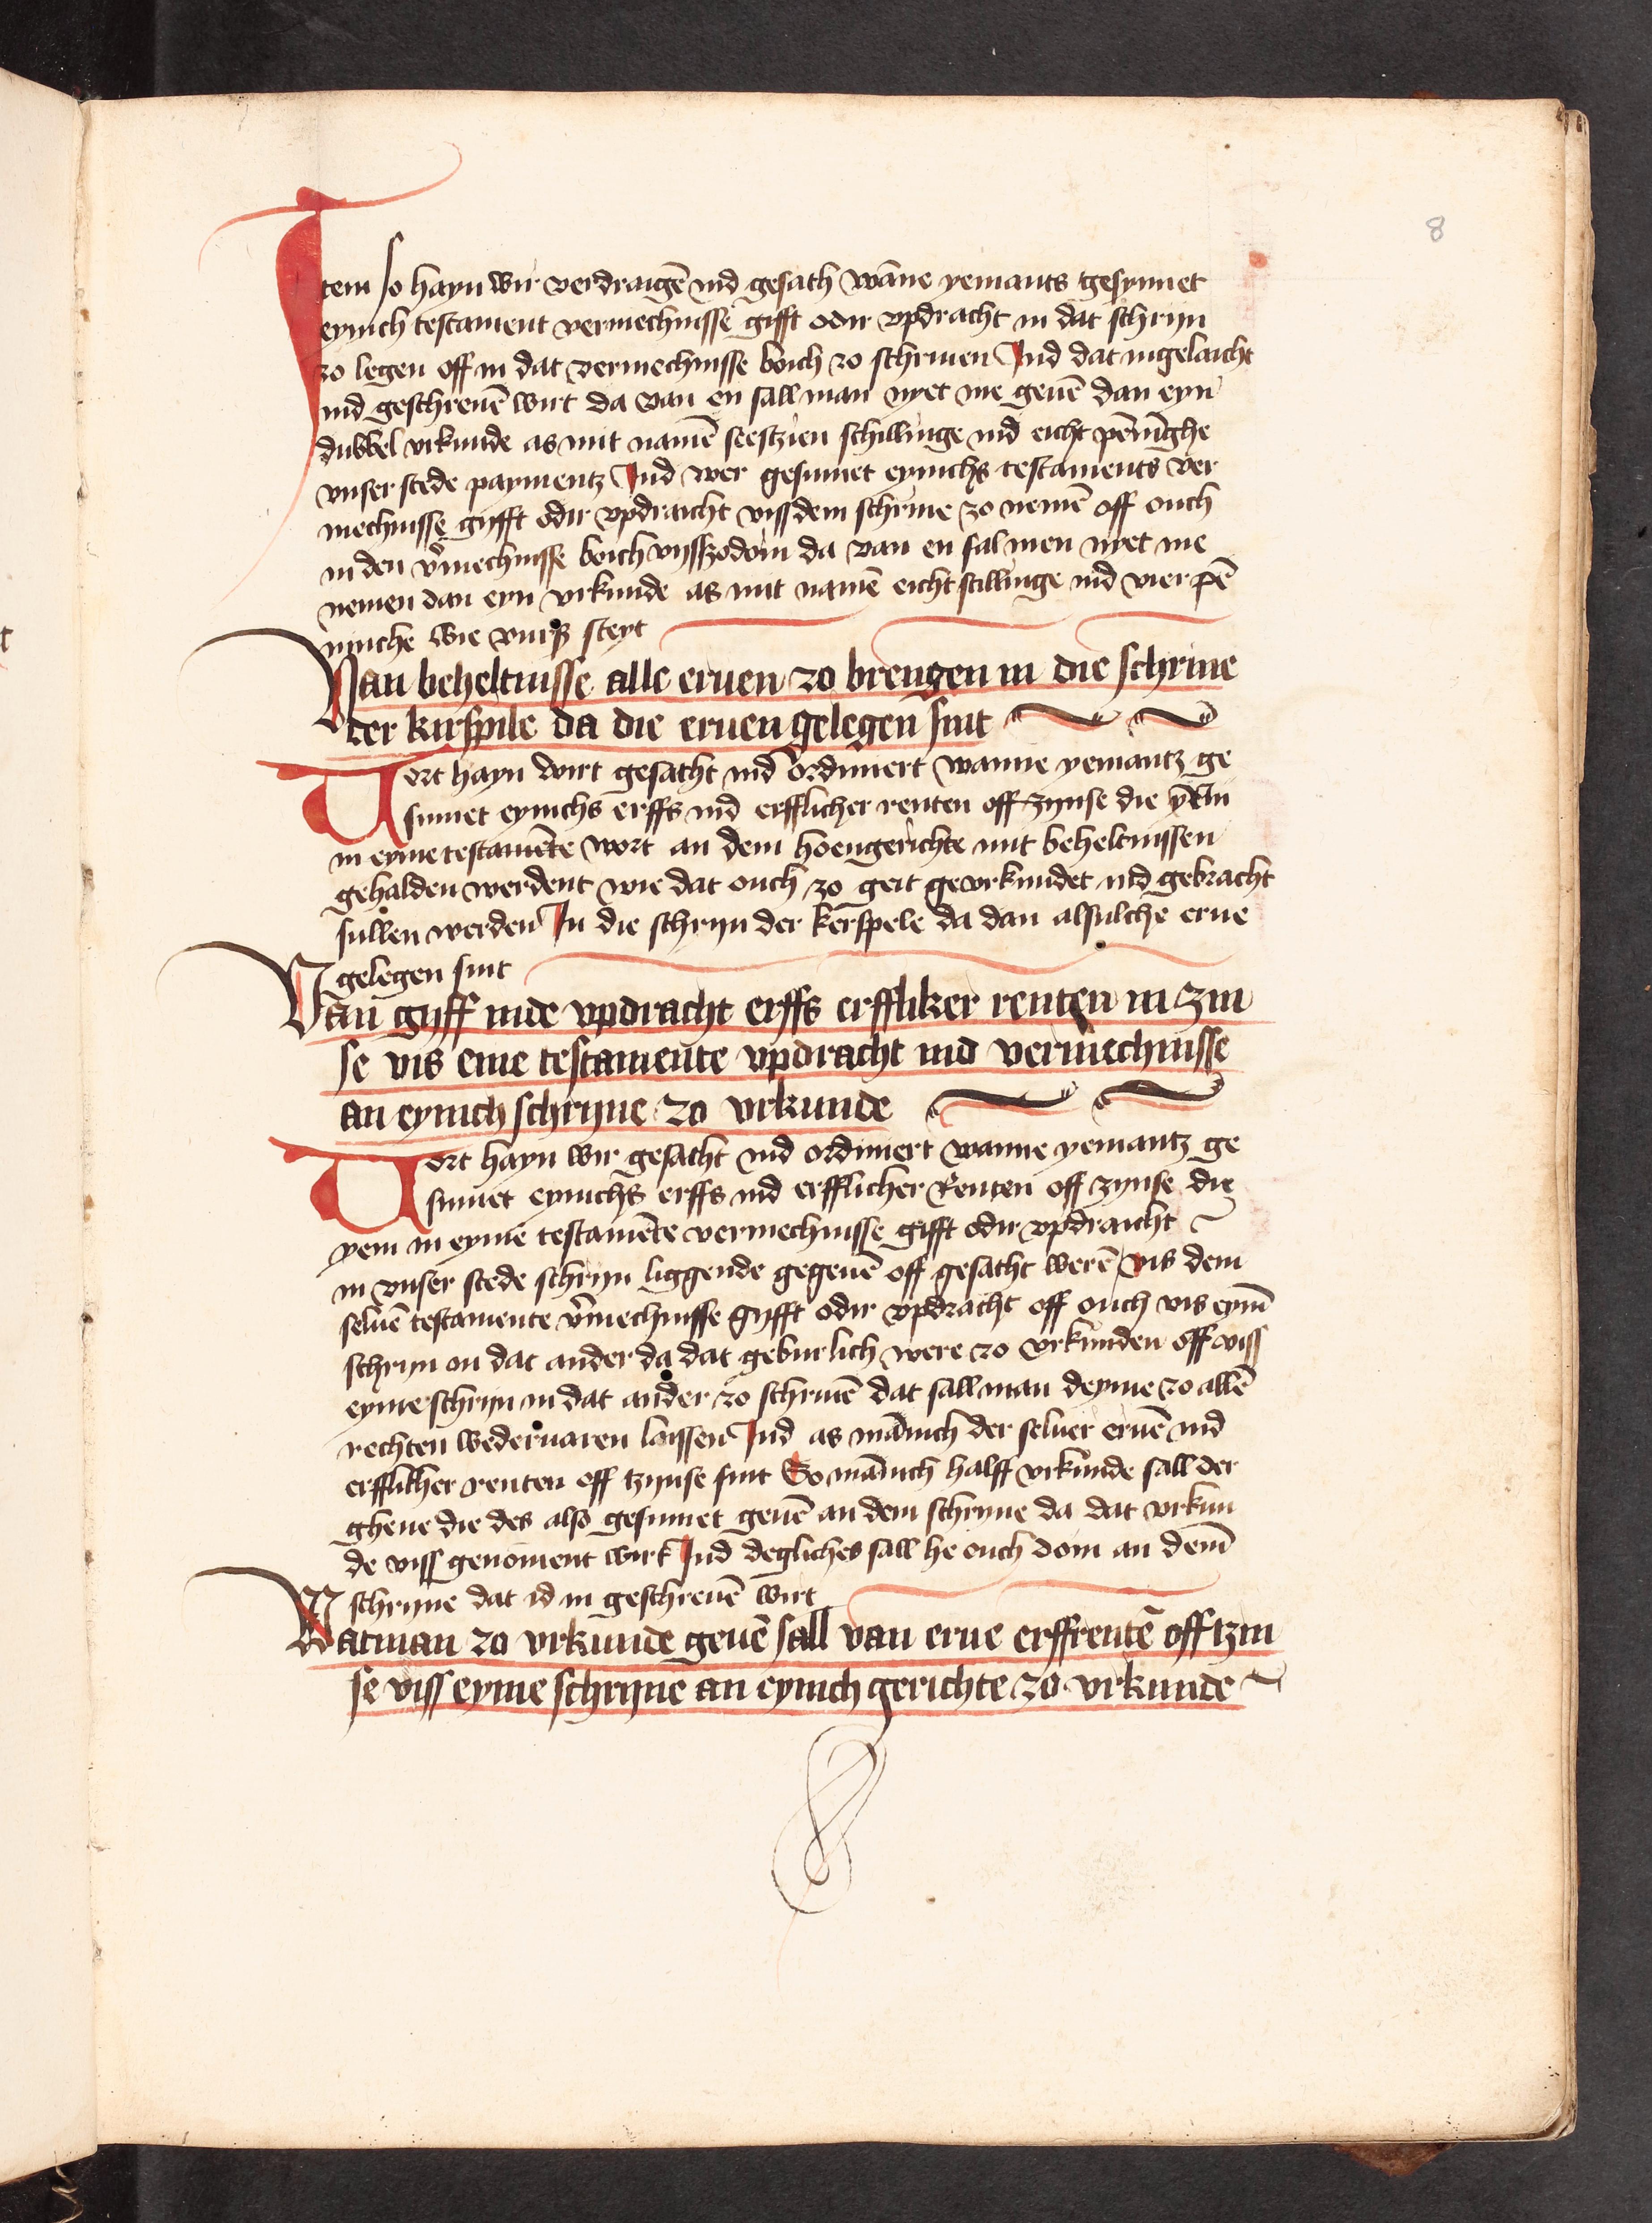 8
Item so hayn wir verdraigē ind gesath wāne yemants gesynnet
eynich testament vermechnisse gifft odir vpdracht in dat schrijn
zo legen off in dat vermechnisse boich zo schriuen Ind dat ingelaicht
ind geschreuē wirt da van en sall man nyet me geuē dan eyn
dubbel vrkunde as mit namē seestzien schillinge ind eicht pēnīghe
vnser stede paymentz Ind wer gesinnet eynichs testaments ver
mechnisse gyfft odir vpdraicht viss dem schrine zo nemē off ouch
in den v̄mechnisse boich vyss zodoin da van en sal men nyet me
nemen dan eyn vrkunde as mit namē eicht scillinge ind vier pē
ninche wie vurß steyt
Van beheltnisse alle eruen zo brengen in die schrine
der kirspile da die eruen gelegen sint
Vort hayn wirt gesacht ind ordiniert wanne yemantz ge
sinnet eynichs erffs ind erfflicher renten off zynse die
in eyme testamēte wort an dem hoengerichte mit beheltnissen
gehalden werdent wie dat ouch zo geit gevrkundet ind gebracht
sullen werden In die schrijn der kerspele da dan alsulche erue
gelegen sint
Van gyff inde vpdracht erffs erffliker renten in zin
se vis eme testamente vpdracht ind vermechnisse
an eynich schrijne zo vrkunde
Vort hayn wir gesacht ind ordiniert wanne yemantz ge
sinnet eynichs erffs ind erfflicher Renten off zynse die
yem in eyme testamēte vermechnisse gifft odir vpdraicht
in vnser stede schrijn liggende gegeuē off gesacht werē vis dem
seluē testamente v̄mechnisse gyfft odir vpdracht off ouch vis eynī
schrijn on dat ander da dat geburlich were zo vrkunden off viss
eyme schrijn in dat ander zo schriuē dat sall man deyme zo allē
rechten wederuaren laissen Ind as mānich der seluer eruē ind
erfflicher renten off tzynse sint So mānich halff vrkunde sall der
ghene die des also gesinnet geuē an dem schryne da dat vrkun
de viss genoment wirt Ind degliches sall he ouch doin an dem̄
schryne dat id in geschreuē wirt
Wat man zo vrkunde geuē sall van erue erffrentē off tzin
se viss eyme schrijne an eynich gerichte zo vrkunde